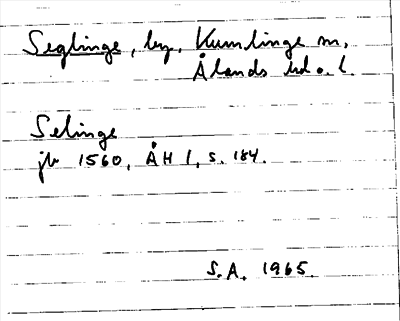 Seglinge, by, Kumlinge sn,
Ålands hd o. l.
Selinge
jb 1560, ÅH 1, s. 184.
S.A. 1965.